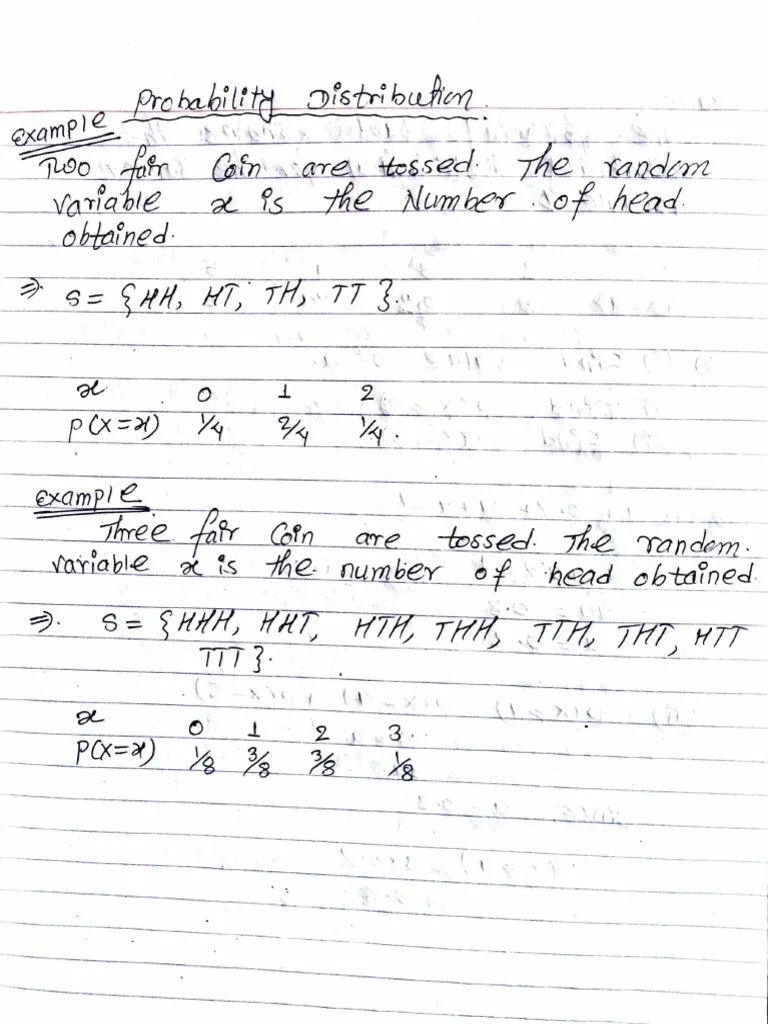 Probability Distribution.
Example
Two fair Coin are tossed. The random
variable x is the Number of head
obtained.
⇒ S = {HH, HT, TH, TT}.
x 0 1 2
P(X=x) 1/4 2/4 1/4.
Example
Three fair Coin are tossed. The random.
variable x is the number of head obtained
⇒. S = {HHH, HHT, HTH, THH, TTH, THT, HTT
TTT}.
x 0 1 2 3.
P(X=x) 1/8 3/8 3/8 1/8